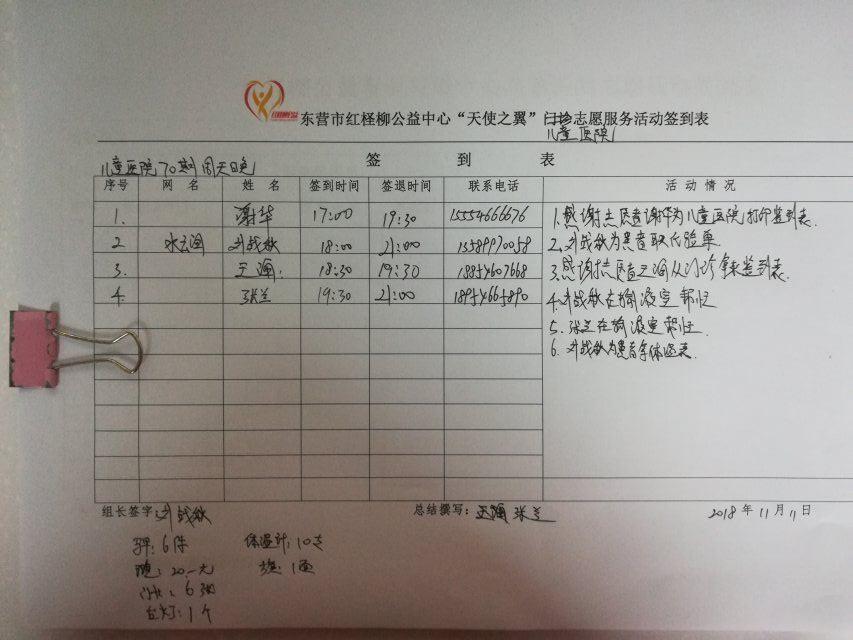 东营市红柽柳公益中心“天使之翼”门诊志愿服务活动签到表
儿童医院
签 到 表
儿童医院70期 周天日晚
序号 网 名 姓 名 签到时间 签退时间 联系电话 活 动 情 况
1. 谢华 17:00 19:30 15554666676
2 水云涧 战秋 18:00 21:00 13589970058
3. 王 18:30 19:30 18854607668
4. 张兰 19:30 21:00 18954665890
1.感谢志愿者谢华为儿童医院打印签到表.
2.战秋为患者取化验单
3.感谢志愿者王从门诊拿来签到表.
4.战秋在输液室帮忙
5.张兰在输液室帮忙.
6.战秋为患者拿体温表.
组长签字: 战秋
总结撰写: 王 张兰
2018年11月11日
: 6件 体温计: 10支
: 20元 旗: 1面
: 6
台灯: 1个